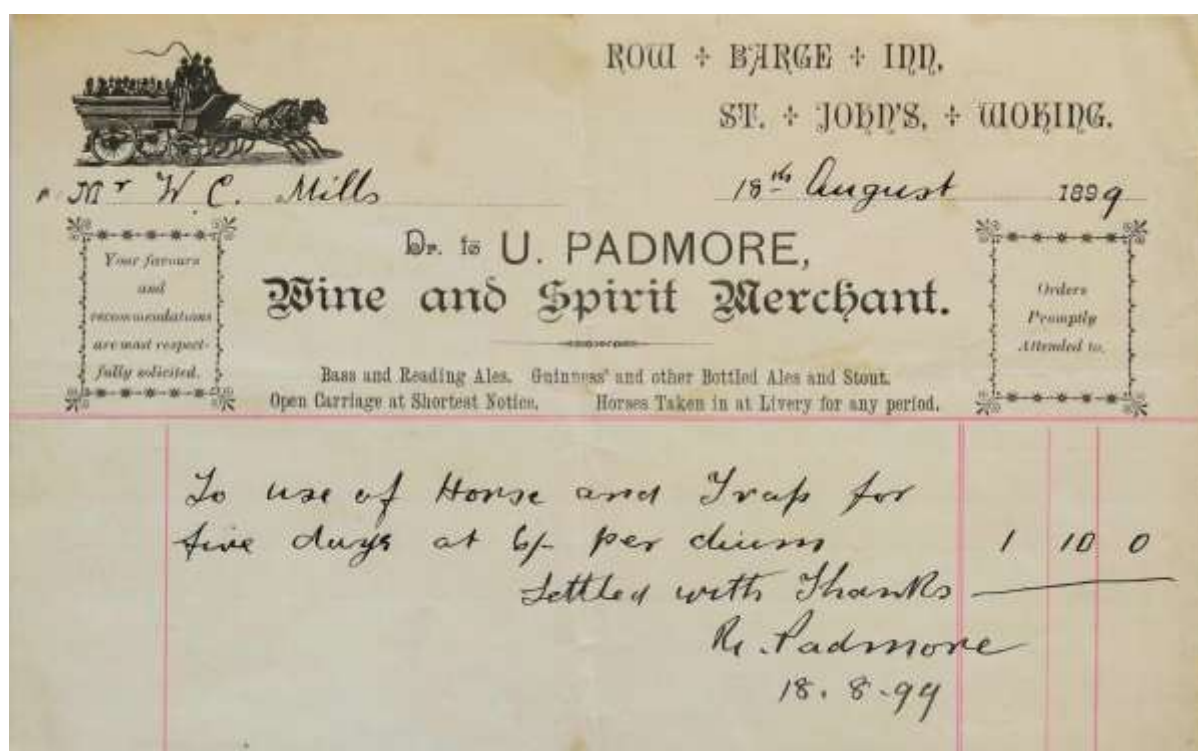 ROW + BARGE + INN,
ST. + JOHN'S, + WOKING.
Mr W. C. Mills
18th August 1899
Dr. to U. PADMORE,
Wine and Spirit Merchant.
Your favours
and
recommendations
are most respect-
fully solicited.
Orders
Promptly
Attended to.
Bass and Reading Ales. Guinness' and other Bottled Ales and Stout.
Open Carriage at Shortest Notice. Horses Taken in at Livery for any period.
To use of Horse and Trap for
five days at 6/- per diem 1 10 0
Settled with Thanks
Padmore
18.8.99